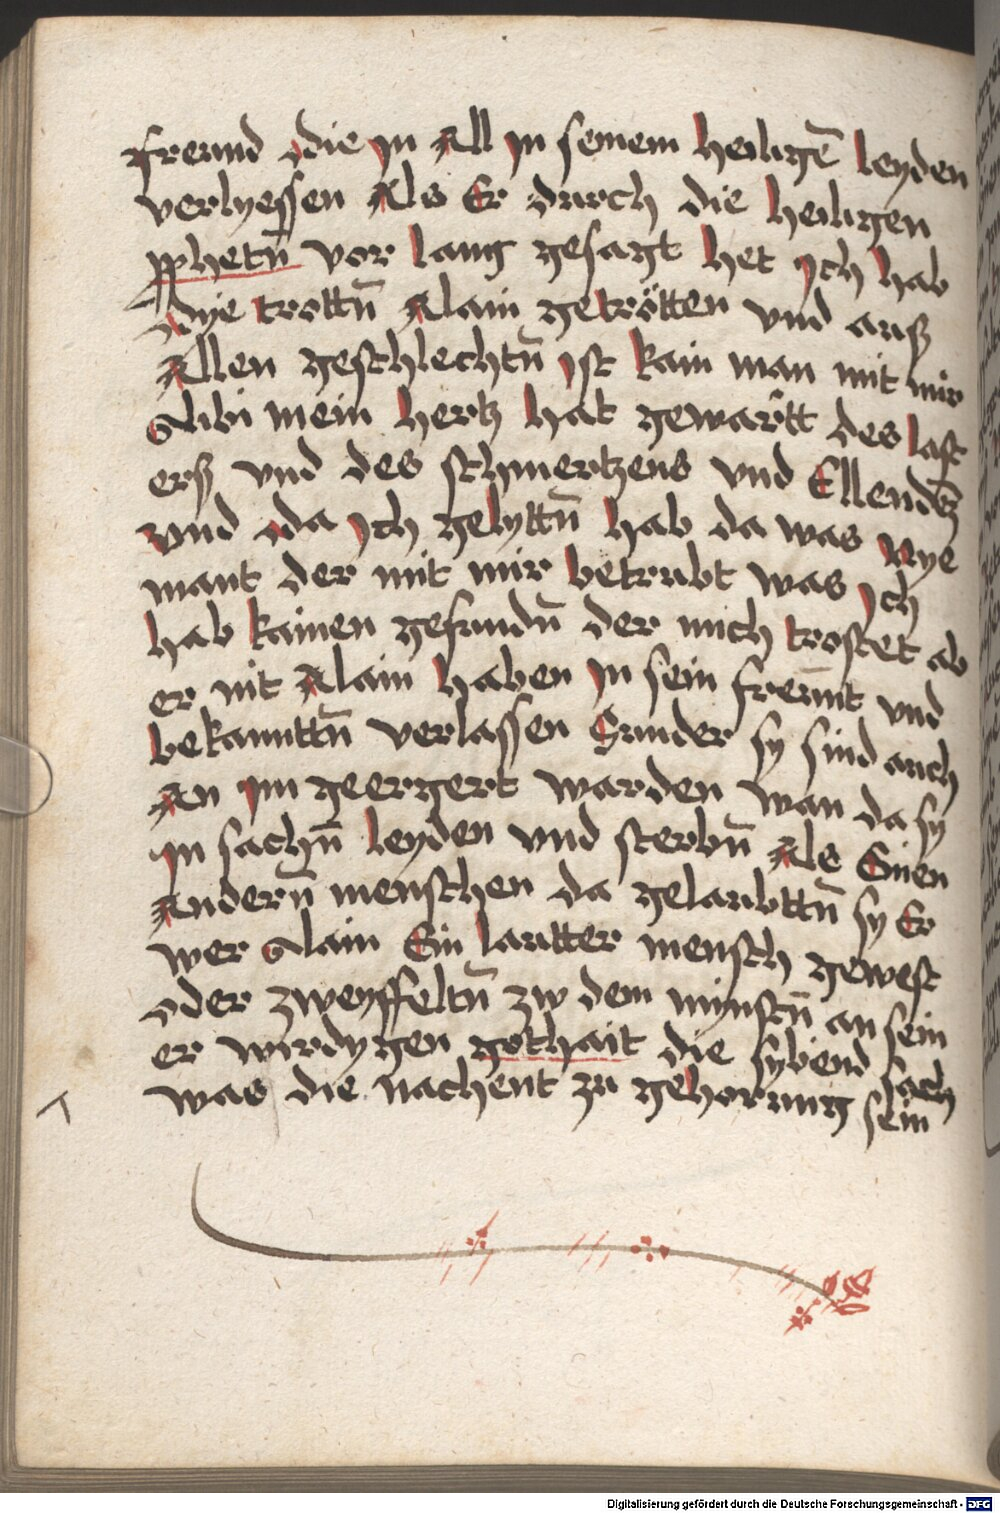 freund die in All in seinem heiligē leyden
verlyessen Als Er durch die heiligen
pphetn̄ vor lang gesagt het Ich hab
dye trottn̄ Alain getrötten vnd auß
Allen geschlechtn̄ Ist kain man mit mir
Alibi mein hertz hat gewartt des last
erß vnd des schmertzens vnd Ellendtz
vnd da Ich gelyttn̄ hab da was Nye
mant der mit mir betrubt was Ich
hab kainen gefundn̄ der mich trostet ab
er nit Alain haben In sein freūnt vnd
bekannttn̄ verlassen Sunder sy sind auch
An Im geergert warden wan da sy
In sachn̄ leyden vnd sterbn̄ Als Einen
Andern̄ menschen da gelaubttn̄ sy Er
wer Alain Ein lautter mensch gewest
oder zweyffeltn̄ zw dem mynstn̄ an sein
er wirdygen gothait die sybend sach
was die nachent zu gehorung sein
Digitalisierung gefördert durch die Deutsche Forschungsgemeinschaft - DFG